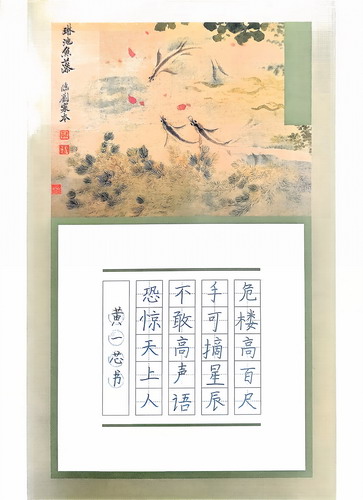 落花游魚 臨劉寀本
危楼高百尺
手可摘星辰
不敢高声语
恐惊天上人
黄一芯书